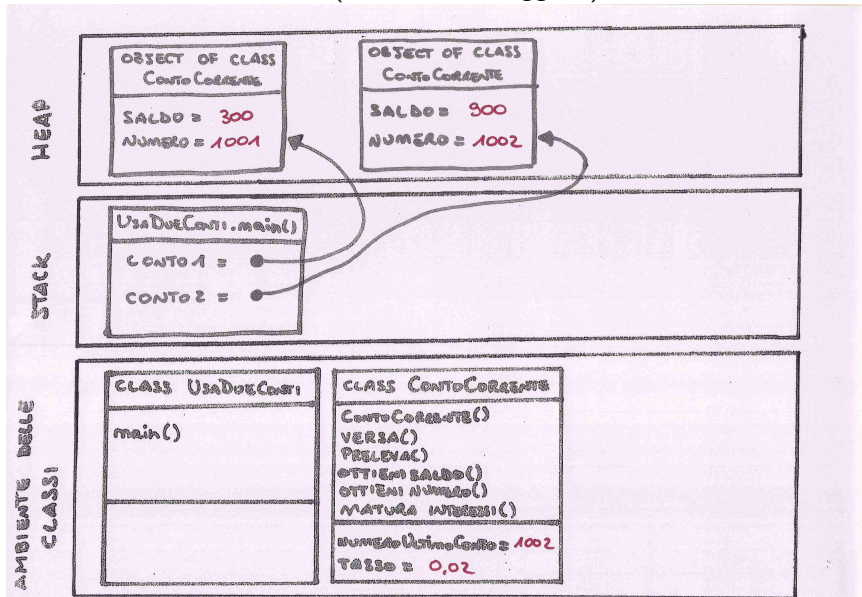 HEAP
OBJECT OF CLASS
CONTO CORRENTE
SALDO = 300
NUMERO = 1001
OBJECT OF CLASS
CONTO CORRENTE
SALDO = 900
NUMERO = 1002
STACK
USADUECONTI.main()
CONTO1 =
CONTO2 =
AMBIENTE DELLE
CLASSI
CLASS USADUECONTI
main()
CLASS CONTOCORRENTE
CONTOCORRENTE()
VERSA()
PRELEVA()
OTTIENI SALDO()
OTTIENI NUMERO()
MATURA INTERESSI()
NUMEROULTIMOCONTO = 1002
TASSO = 0,02